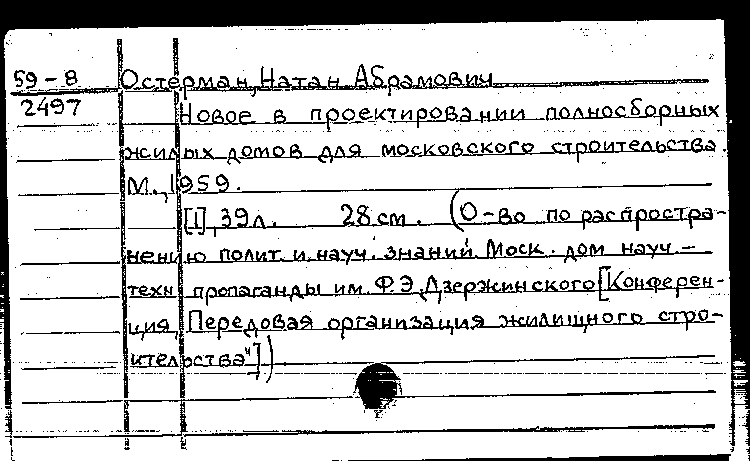 59-8 Остерман, Натан Абрамович
2497 Новое в проектировании полносборных
жилых домов для московского строительства.
М., 1959.
[1], 39л. 28 см. (О-во по распростра-
нению полит. и науч. знаний. Моск. дом науч.-
техн. пропаганды им. Ф.Э.Дзержинского [Конферен-
ция „Передовая организация жилищного стро-
ительства"].)